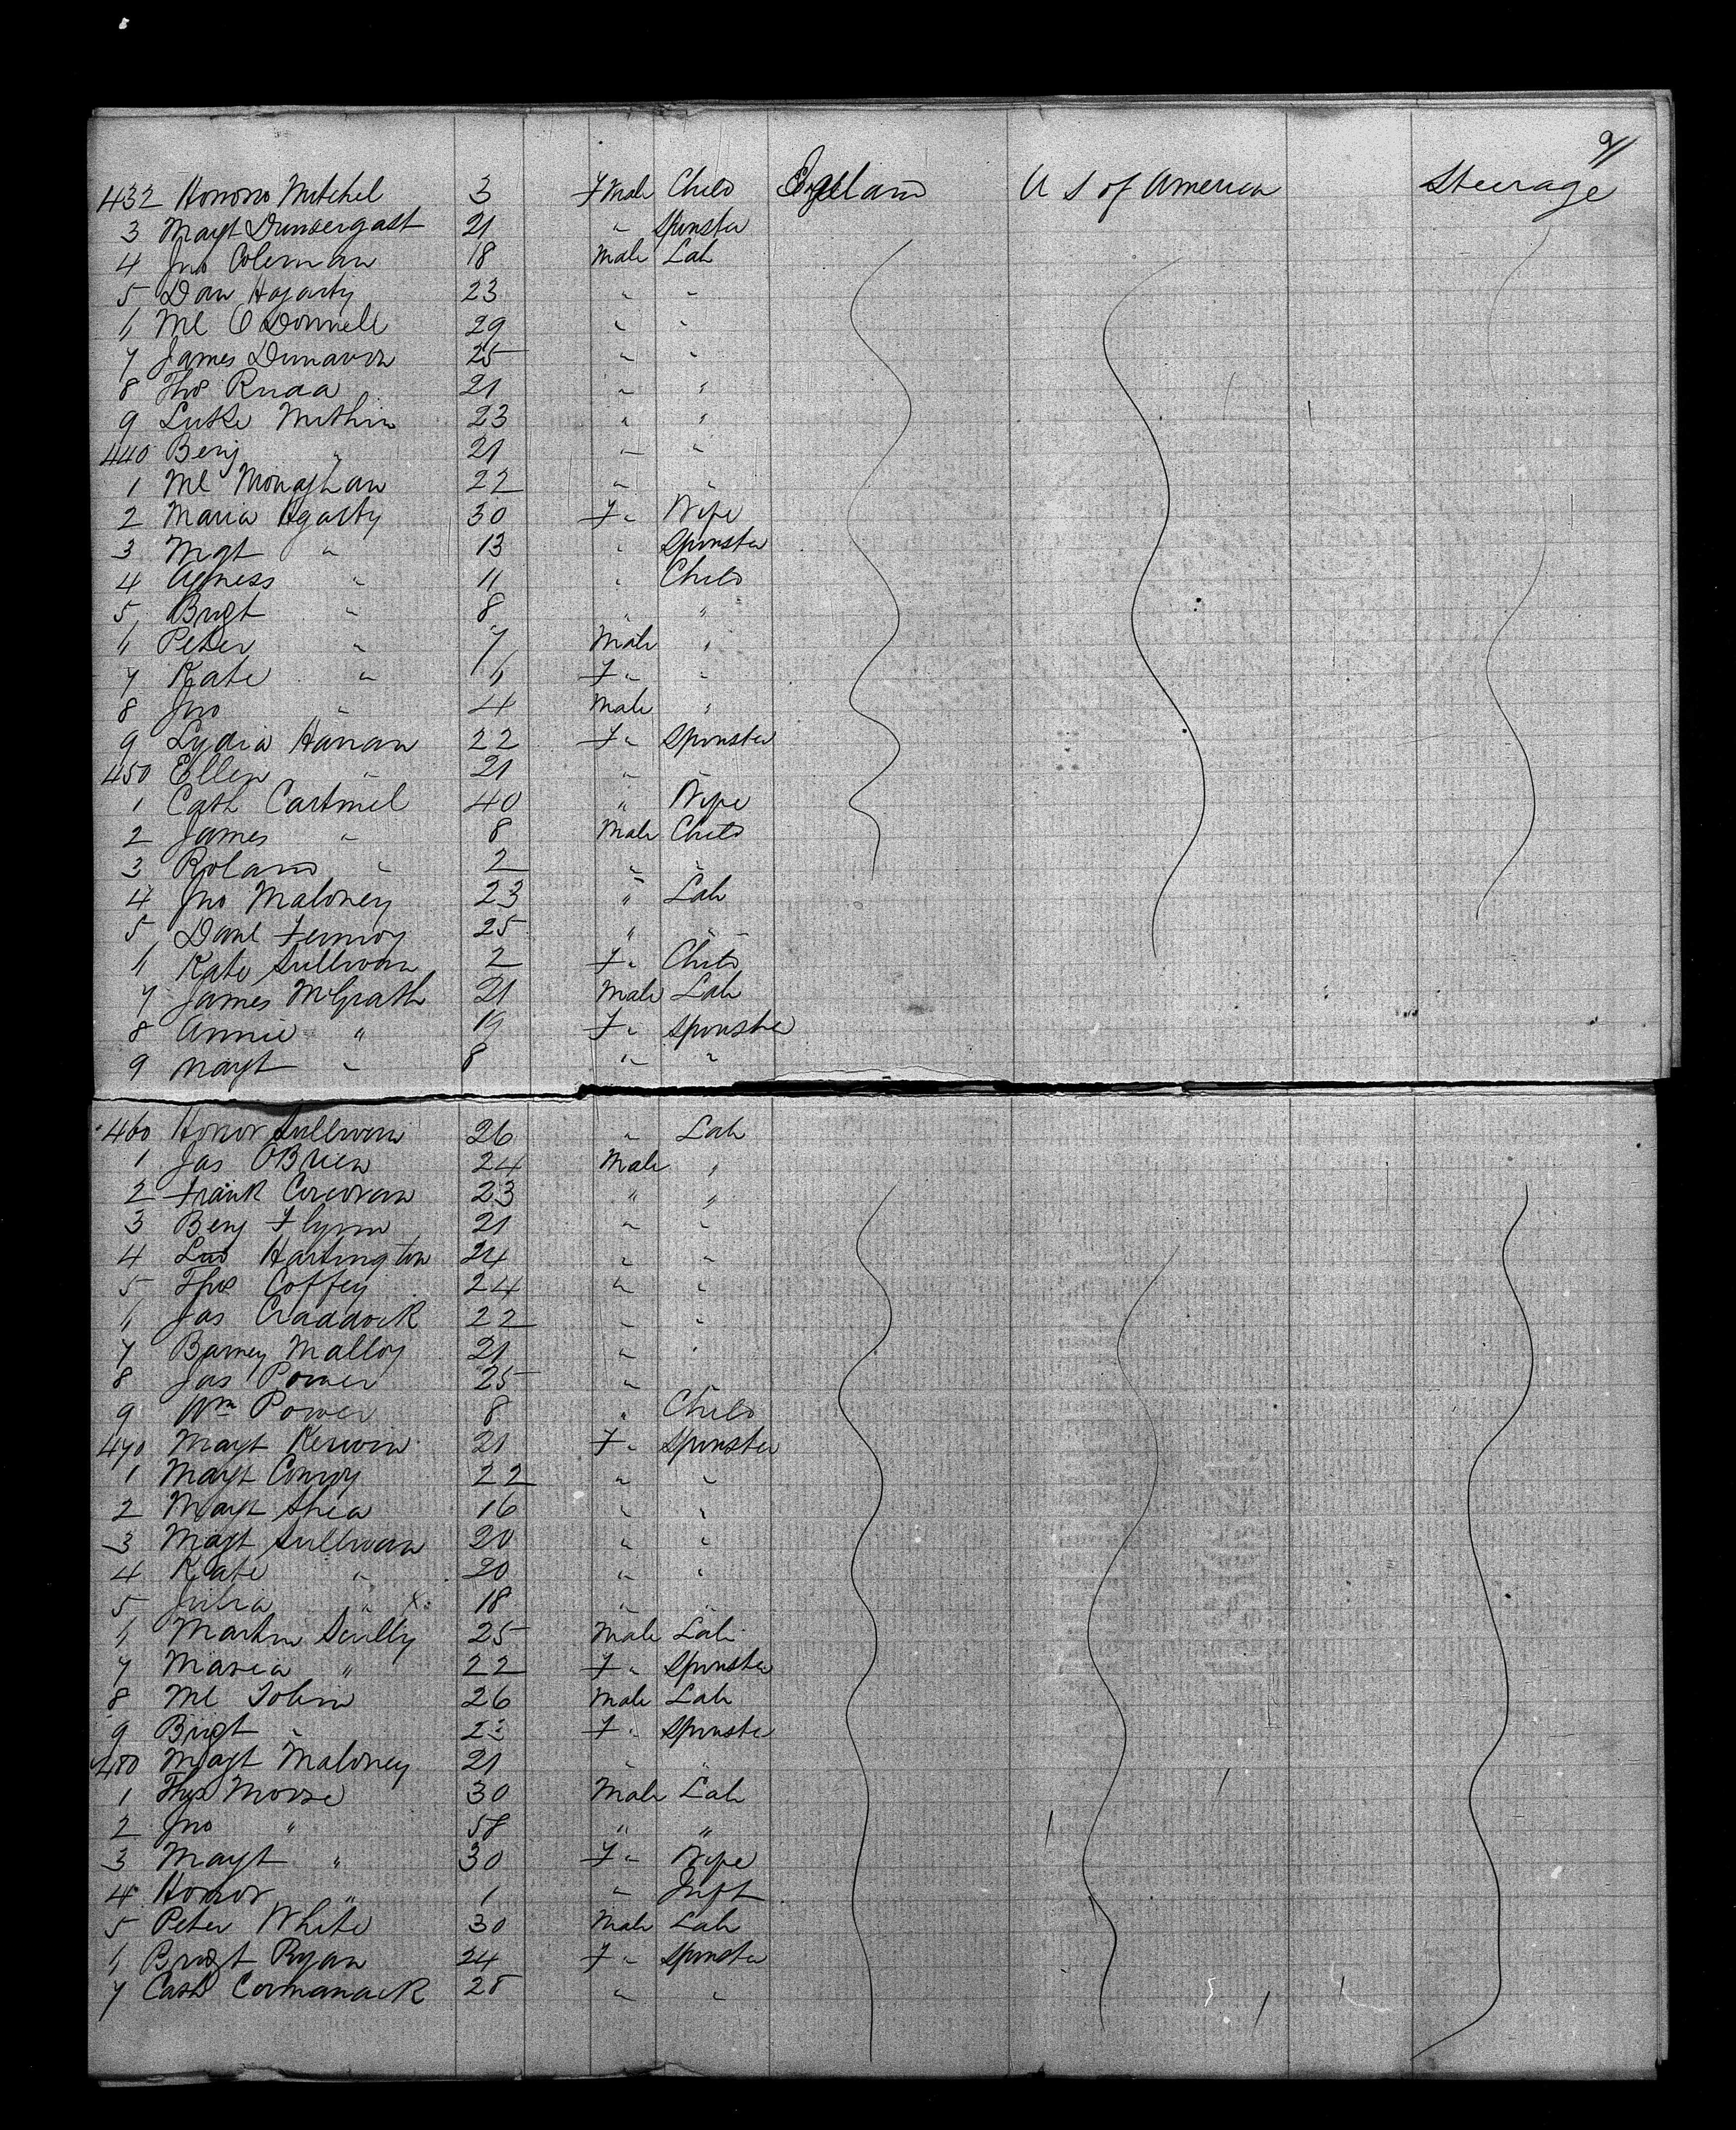 9
432 Honora Mitchel 3 F Male Child England U S of America Steerage
3 Magt Dundergast 21 " Spinster
4 Jno Coleman 18 Male Lab
5 Dan Hagarty 23 " "
6 Ml O Donnell 29 " "
7 James Dunavon 25 " "
8 Thos Ruaa 21 " "
9 Luke Methin 23 " "
440 Benj " 21 " "
1 Ml Monaghan 22 " "
2 Maria Hgarty 30 F " Wife
3 Mgt " 13 " Spinster
4 Agness " 11 " Child
5 Brigt " 8 " "
6 Peter " 7 Male "
7 Kate " 6 F " "
8 Jno " 4 Male "
9 Lydia Hanan 22 F " Spinster
450 Ellen " 21 " "
1 Cath Cartmel 40 " Wife
2 James " 8 Male Child
3 Roland " 2 " "
4 Jno Maloney 23 " Lab
5 Danl Fermoy 25 " "
6 Kate Sullivan 2 F " Child
7 James McGrath 21 Male Lab
8 Annie " 19 F " Spinster
9 Magt " 8 " "
460 Honor Sullivan 26 " Lab
1 Jas OBrien 24 Male "
2 Frank Corcoran 23 " "
3 Benj Flynn 21 " "
4 Hartington 24 " "
5 Thos Coffey 24 " "
6 Jas Craddock 22 " "
7 Barney Malloy 21 " "
8 Jas Power 25 " "
9 Wm Power 8 " Child
470 Magt Kerwin 21 F " Spinster
1 Magt Conroy 22 " "
2 Magt Shea 16 " "
3 Magt Sullivan 20 " "
4 Kate " 20 " "
5 Julia " x 18 " "
6 Martin Scully 25 Male Lab
7 Maria " 22 F " Spinster
8 Ml Tobin 26 Male Lab
9 Brigt " 22 F " Spinster
480 Magt Maloney 21 " "
1 Thos Morse 30 Male Lab
2 Jno " 58 " "
3 Magt " 30 F " Wife
4 Honor " 1 " Inft
5 Peter White 30 Male Lab
6 Brigt Ryan 24 F " Spinster
7 Cath Cormanack 28 " "